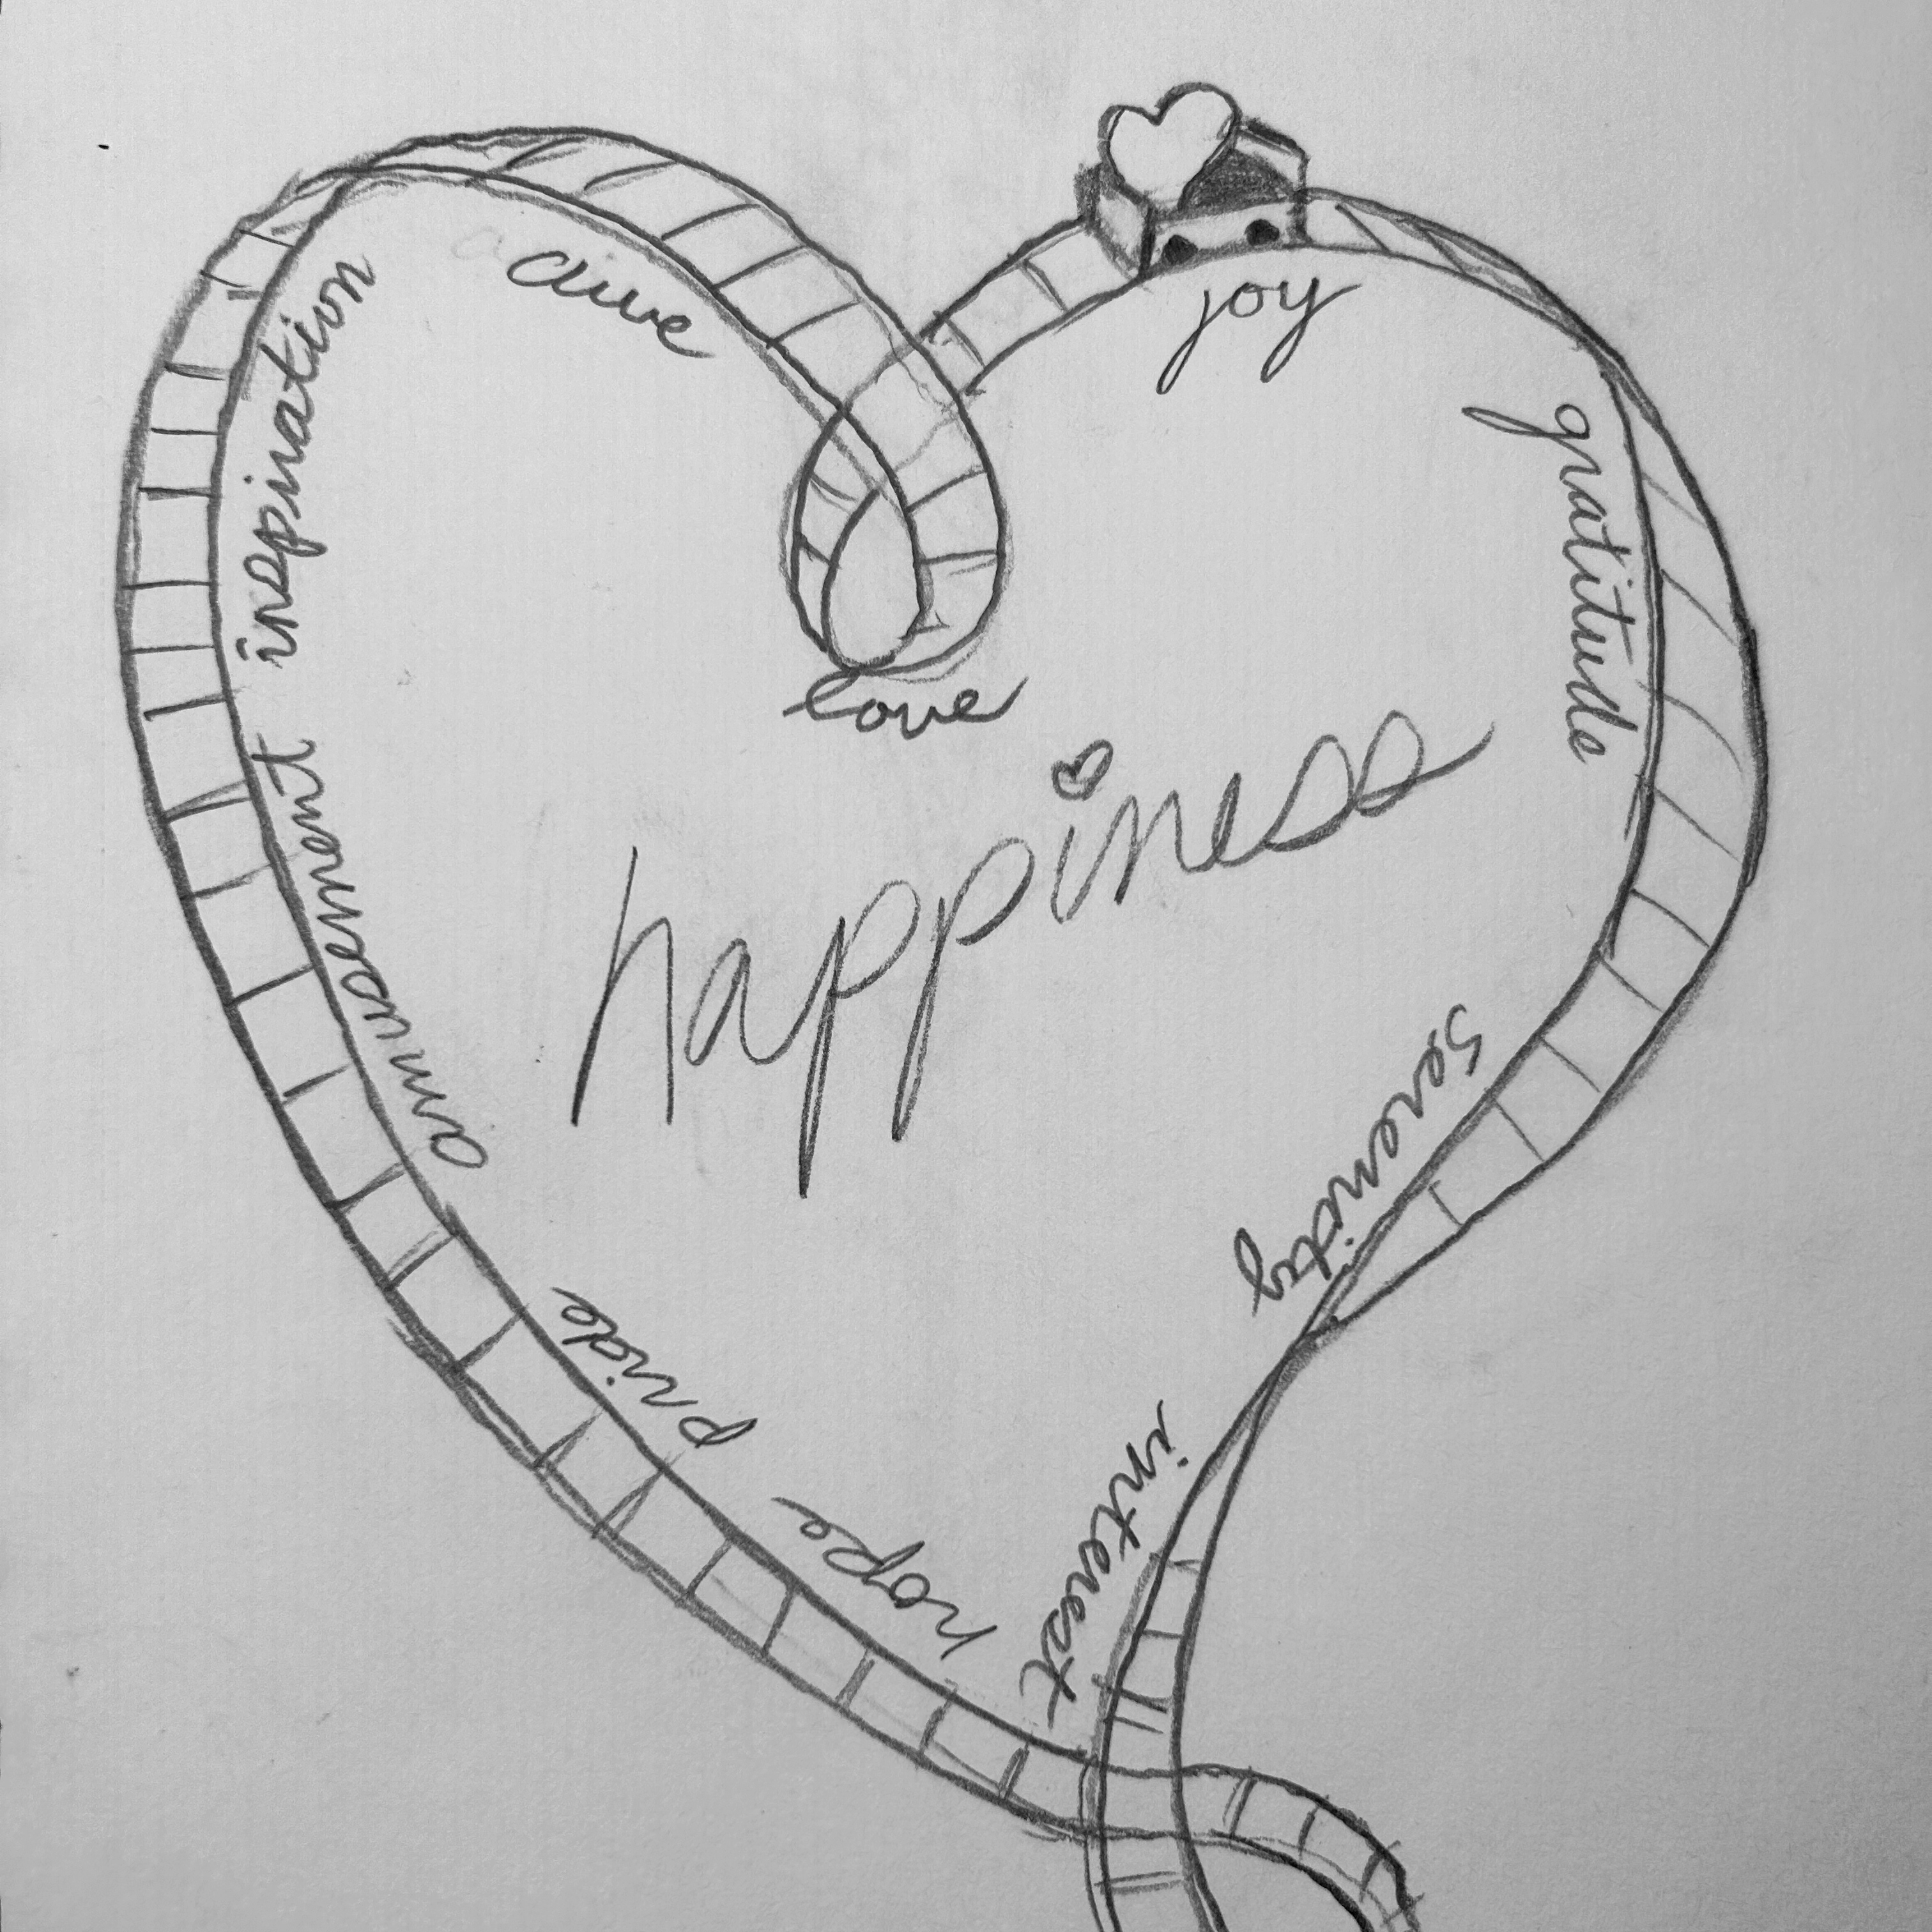 awe
joy
inspiration
gratitude
love
happiness
amusement
Serenity
pride
interest
hope